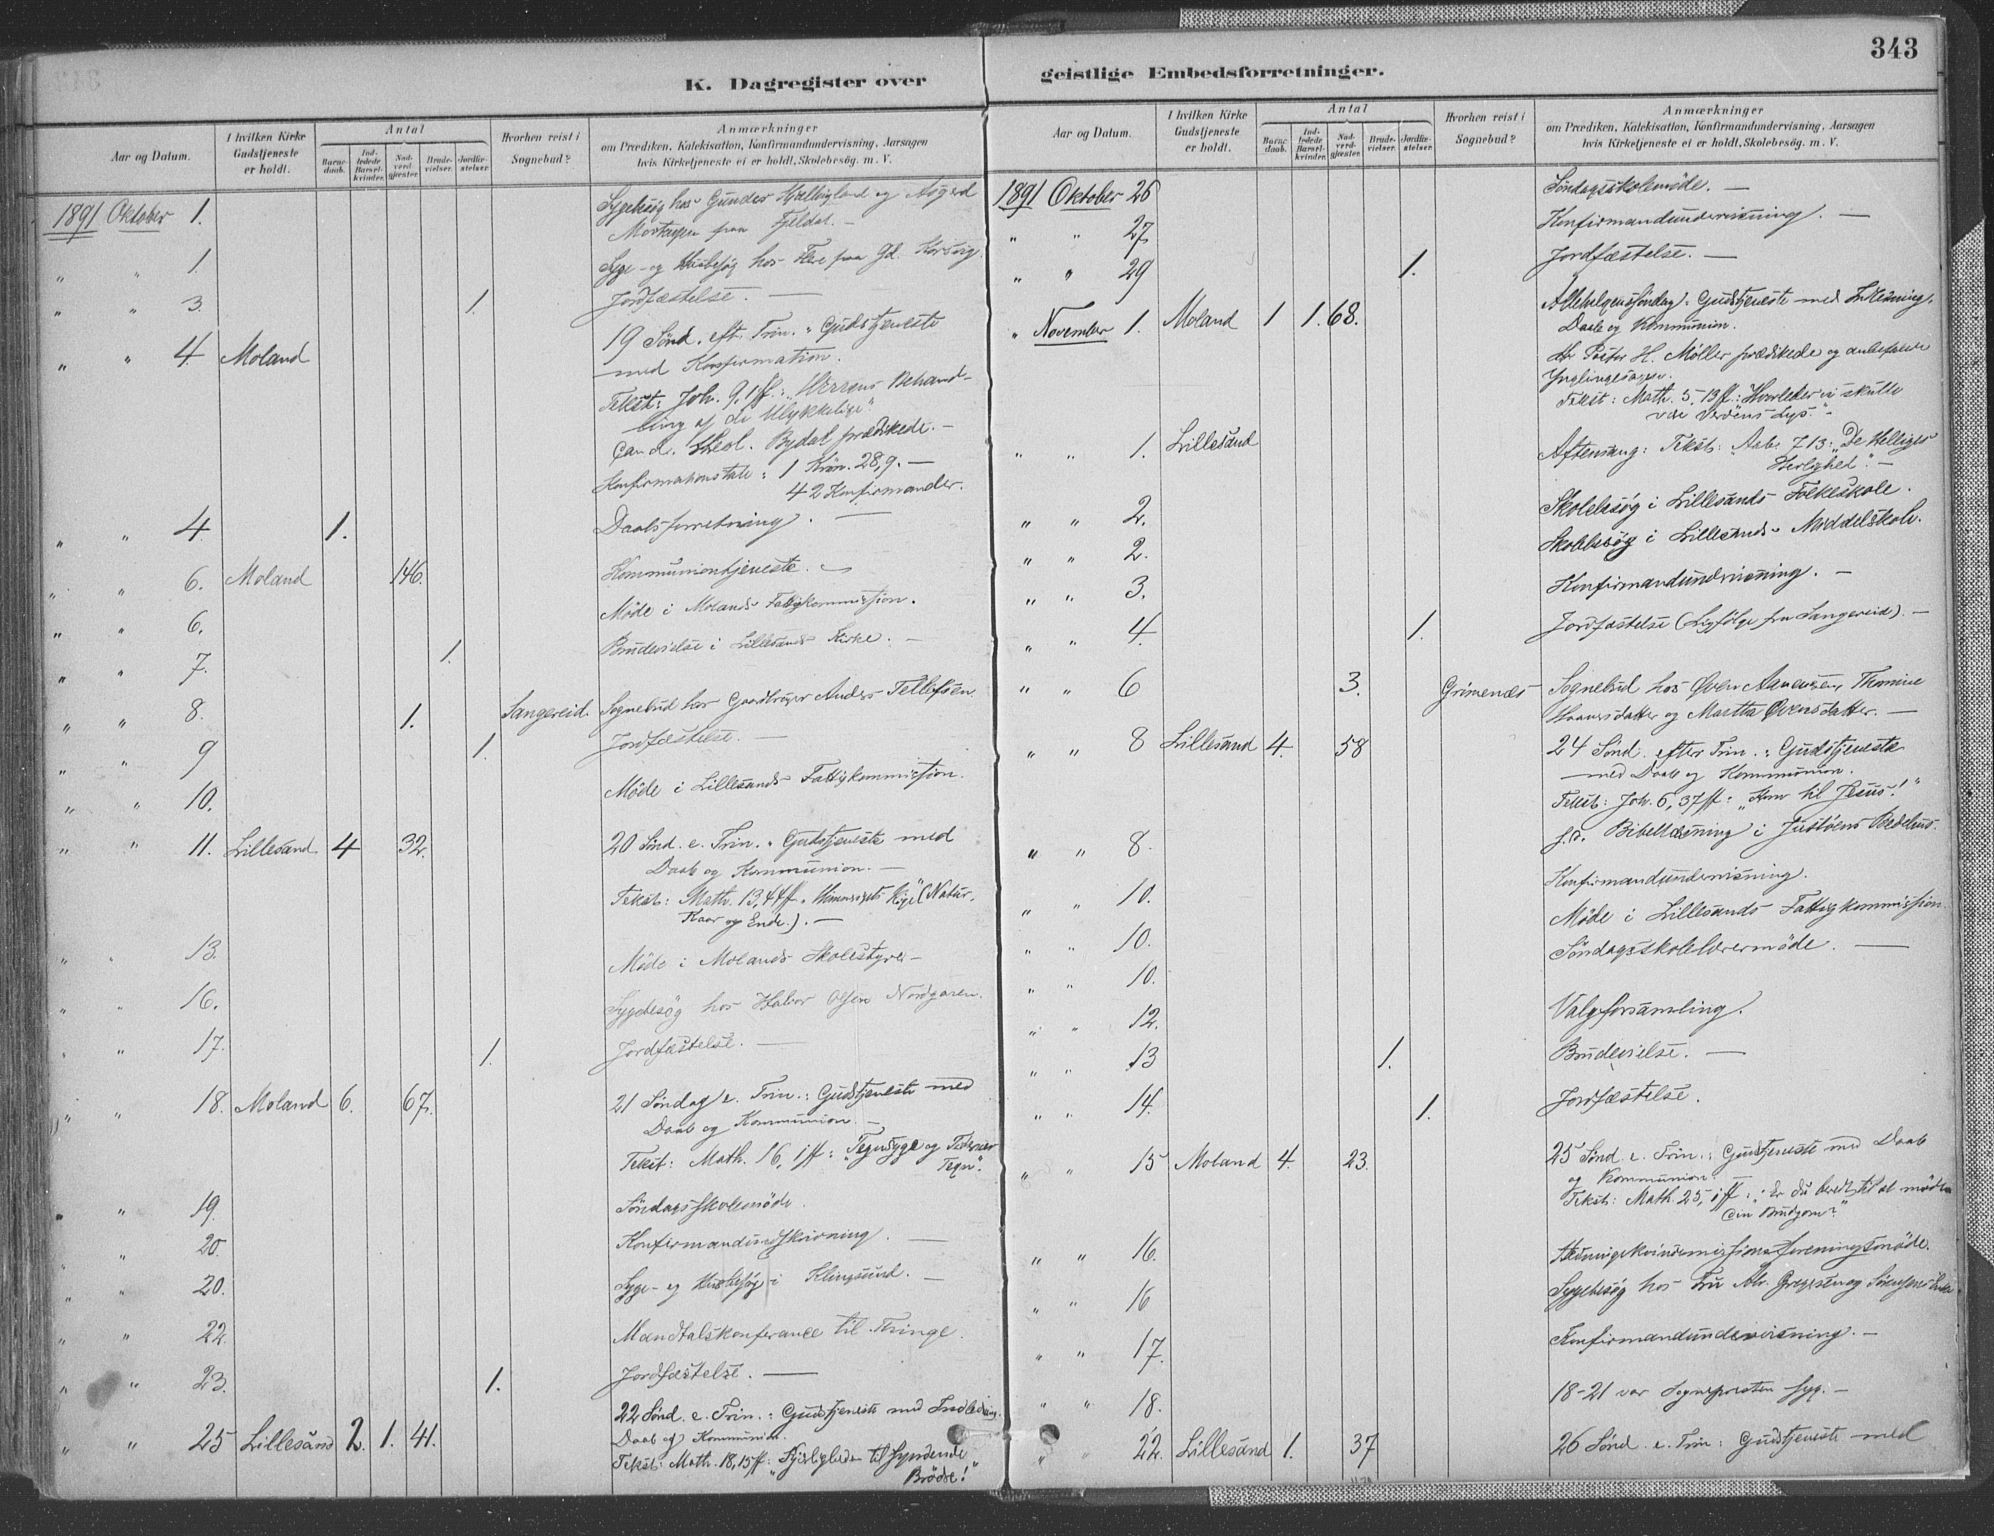 343
K. Dagregister over
Aar og Datum.
I hvilken Kirke Gudstjeneste er holdt.
Antal
Barnedaab.
Indledede Barselkvinder.
Nadverdgjester.
Brudevielser.
Jordfæstelser.
Hvorhen reist i Sognebud?
Anmærkninger
om Prædiken, Katekisation, Konfirmandundervisning, Aarsagen
hvis Kirketjeneste ei er holdt, Skolebesög. m. V.
1891 Oktober 1. Sygebesög hos Gunder og Asgerd
paa Fjeldal. —
" " 1. Syge- og Husbesög hos Flere paa Gd. Korsvig.
" " 3. 1. Jordfæstelse. —
" " 4. Moland 19 Sönd. eft. Trin.: Gudstjeneste
med Konfirmation.
Tekst: Joh. 9, 1 ff.: "Herrens Behand-
ling af de Ulykkelige".
Cand. theol. Bydal prædikede. —
Konfirmationstale: 1 Krön. 28,9. —
42 Konfirmander.
" " 4. 1. Daabsforretning. —
" " 6. Moland 146. Kommuniontjeneste. —
" " 6. Möde i Molands Fattigkommission.
" " 7. 1. Brudevielse i Lillesands Kirke. —
" " 8. 1. Sangereid. Sognebud hos Gaardbruger Anders Tellefsen
" " 9 1. Jordfæstelse. —
" " 10. Möde i Lillesands Fattigkommission.
" " 11. Lillesand. 4 32. 20 Sönd. e. Trin.: Gudstjeneste med
Daab og Kommunion. —
Tekst: Math. 13,44 ff. "Himmeriges Rige" (Natur,
Kaar og Ende). —
" " 13. Möde i Molands Skolestyre. —
" " 16. Sygebesög hos Halvor Olsen Nordgaren.
" " 17. 1. Jordfæstelse. —
" " 18. Moland 6. 67. 21 Söndag e. Trin.: Gudstjeneste med
Daab og Kommunion. —
Tekst: Math. 16, 1 ff: "Tegnsyge og Tidernes
Tegn".
" " 19. Söndagsskolemöde.
" " 20. Konfirmandindskrivning. —
" " 20. Syge- og Husbesög i Klingsund. —
" " 22. Mandtalskonferance til Thinge.
" " 23. 1. Jordfæstelse. —
" " 25 Lillesand 2. 1. 41. 22 Sönd. e. Trin.: Gudstjeneste med Indledning,
Daab og Kommunion.
Tekst: Math. 18,15 ff: "Kjærligheden til syndende
Brödre!"
geistlige Embedsforretninger.
Aar og Datum.
I hvilken Kirke Gudstjeneste er holdt.
Antal
Barnedaab.
Indledede Barselkvinder.
Nadverdgjester.
Brudevielser.
Jordfæstelser.
Hvorhen reist i Sognebud?
Anmærkninger
om Prædiken, Katekisation, Konfirmandundervisning, Aarsagen
hvis Kirketjeneste ei er holdt, Skolebesög. m. V.
1891 Oktober 26 Söndagsskolemöde. —
" " 27. Konfirmandundervisning. —
" " 29 1. Jordfæstelse. —
" November 1. Moland 1 1. 68. Allehelgensöndag: Gudstjeneste med Indledning,
Daab og Kommunion.
Hr Pastor H. Møller prædikede og anbefalede
Ynglingesagen.
Tekst: Math. 5, 13 ff: "Hvorledes vi skulle
være Verdens Lys." —
" " 1. Lillesand Aftensang: Tekst: Aab. 7 13: "De Helliges
Herlighed". —
" " 2. Skolebesög i Lillesands Folkeskole.
" " 2. Skolebesög i Lillesands Middelskole.
" " 3. Konfirmandundervisning. —
" " 4. 1. Jordfæstelse (Ligfölge fra Sangereid). —
" " 6 3. Grimenæs Sognebud hos Öven Aanensen, Thomine
og Martha Övensdatter. —
" " 8 Lillesand 4. 58 24 Sönd. efter Trin.: Gudstjeneste
med Daab og Kommunion.
Tekst: Joh. 6, 37 ff: "Kom til Jesus!"
" " 8. s. D. Bibellæsning i Justöens Bedehus.
" " 10. Konfirmandundervisning.
" " 10. Möde i Lillesands Fattigkommission.
" " 10. Söndagsskolelærermöde. —
" " 12. Valgforsamling.
" " 13 1. Brudevielse. —
" " 14. 1. Jordfæstelse.
" " 15 Moland 4. 23. 25 Sönd. e. Trin.: Gudstjeneste med Daab
og Kommunion. —
Tekst: Math. 25, 1 ff: "Er du beredt til at möde
din Brudgom?"
" " 16.
" " 16 Sygebesög hos Fru og Sörensens Enke.
" " 17. Konfirmandundervisning. —
" " 18. 18-21 var Sognepresten syg. —
" " 22. Lillesand 1. 37 26 Sönd. e. Trin: Gudstjeneste med